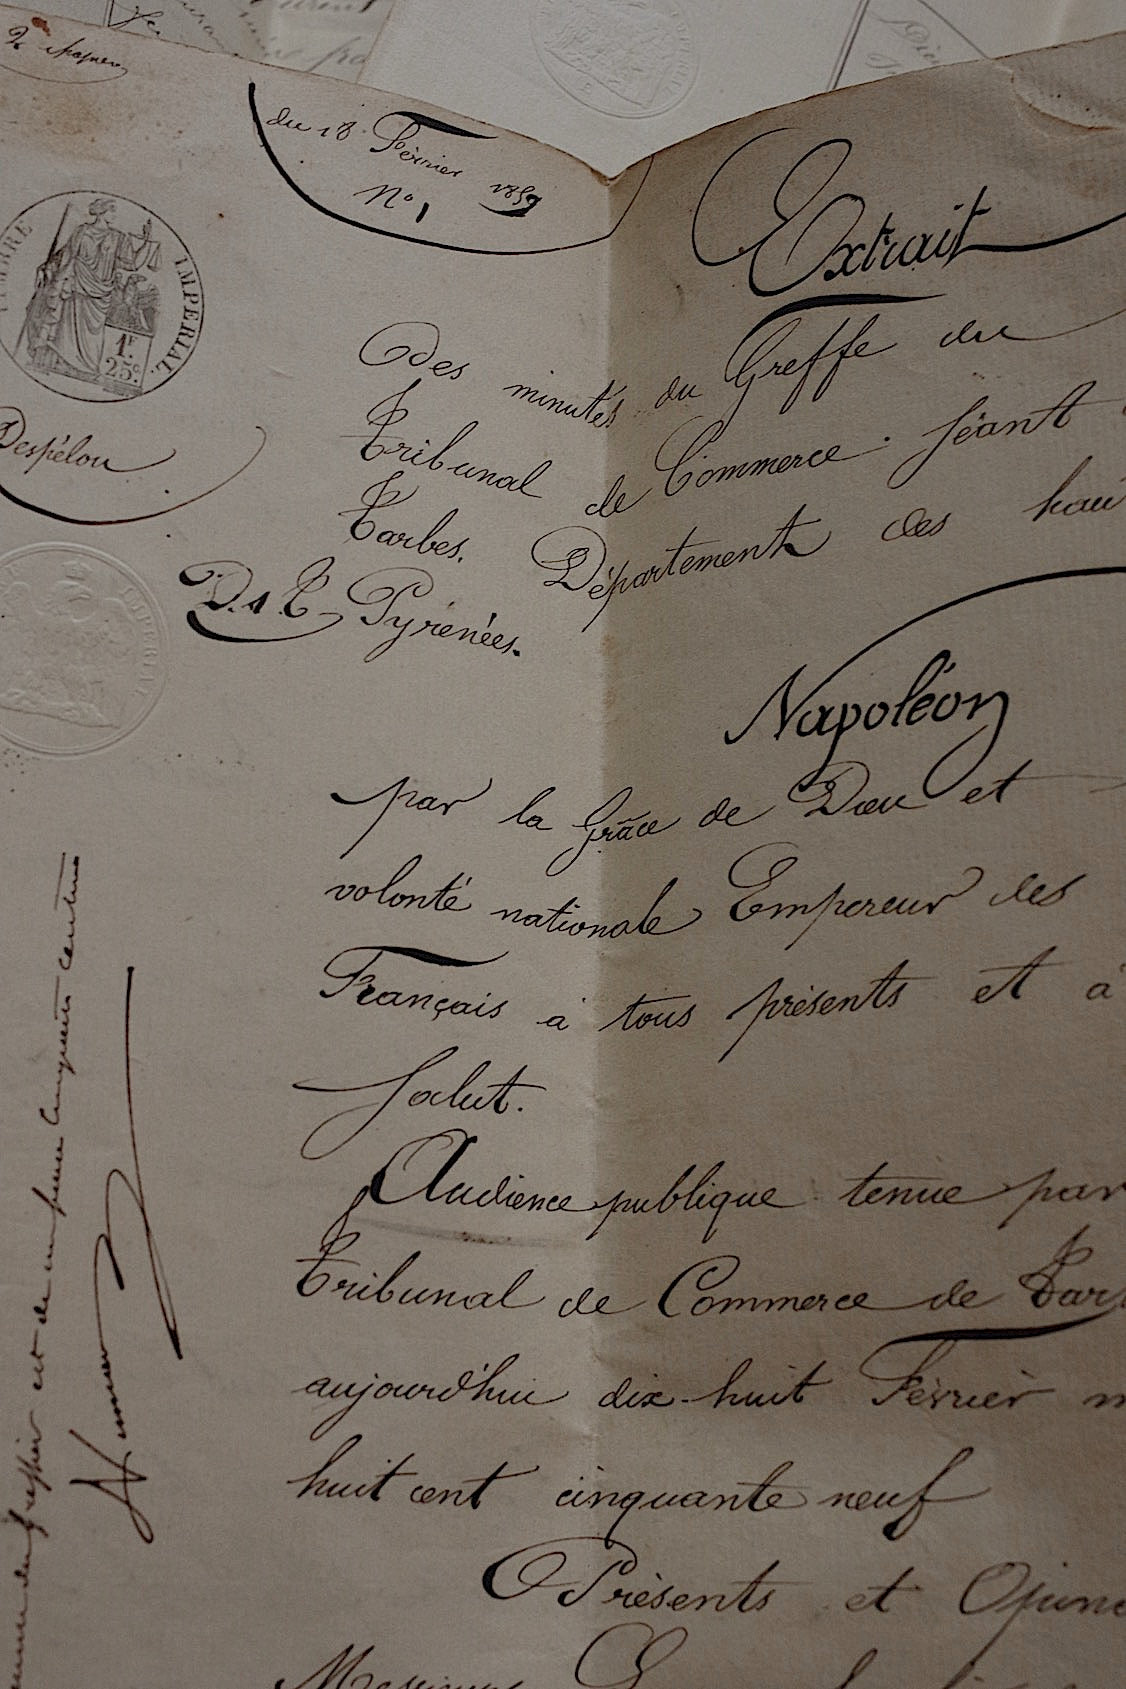 du 18 Février 1859
N° 1
Extrait
TIMBRE IMPERIAL
1F.
25c.
Des minutes du Greffe du
Tribunal de Commerce séant
Despélou
Tarbes. Département des hau
Pyrénées.
Napoléon
par la Grâce de Dieu et
volonté nationale Empereur des
Français à tous présents et à
Salut.
Audience publique tenue par
Tribunal de Commerce de Tar
aujourd'hui dix-huit Février m
huit cent cinquante neuf
Présents et Opine
greffier est de un franc cinquante centimes